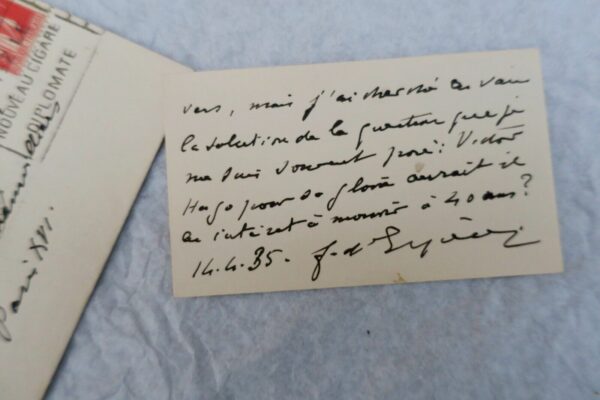 NOUVEAU CIGARE
DIPLOMATE
Paris XVI.
vers, mais j'ai cherché en vain
la solution de la question que je
me suis souvent posé: Victor
Hugo pour sa gloire aurait il
eu intérêt à mourir à 40 ans?
14.4.35.